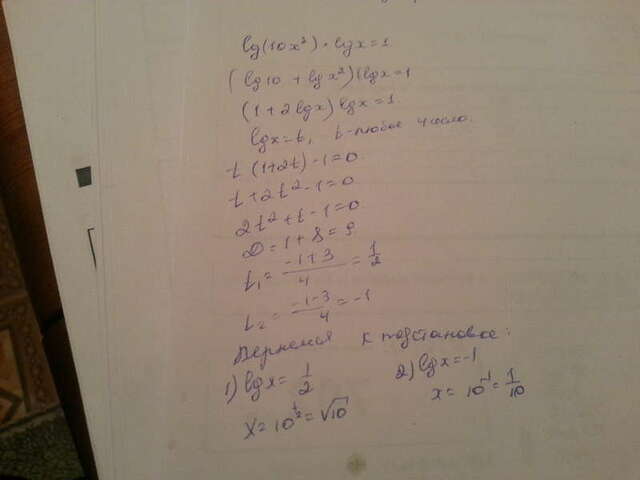 lg(10x²) · lgx = 1
(lg10 + lgx²) lgx = 1
(1 + 2lgx) lgx = 1
lgx = t, t - любое число.
t (1+2t) - 1 = 0
t + 2t² - 1 = 0
2t² + t - 1 = 0
D = 1 + 8 = 9
t₁ = (-1+3)/4 = 1/2
t₂ = (-1-3)/4 = -1
Вернемся к подстановке:
1) lgx = 1/2
x = 10^(1/2) = √10
2) lgx = -1
x = 10⁻¹ = 1/10